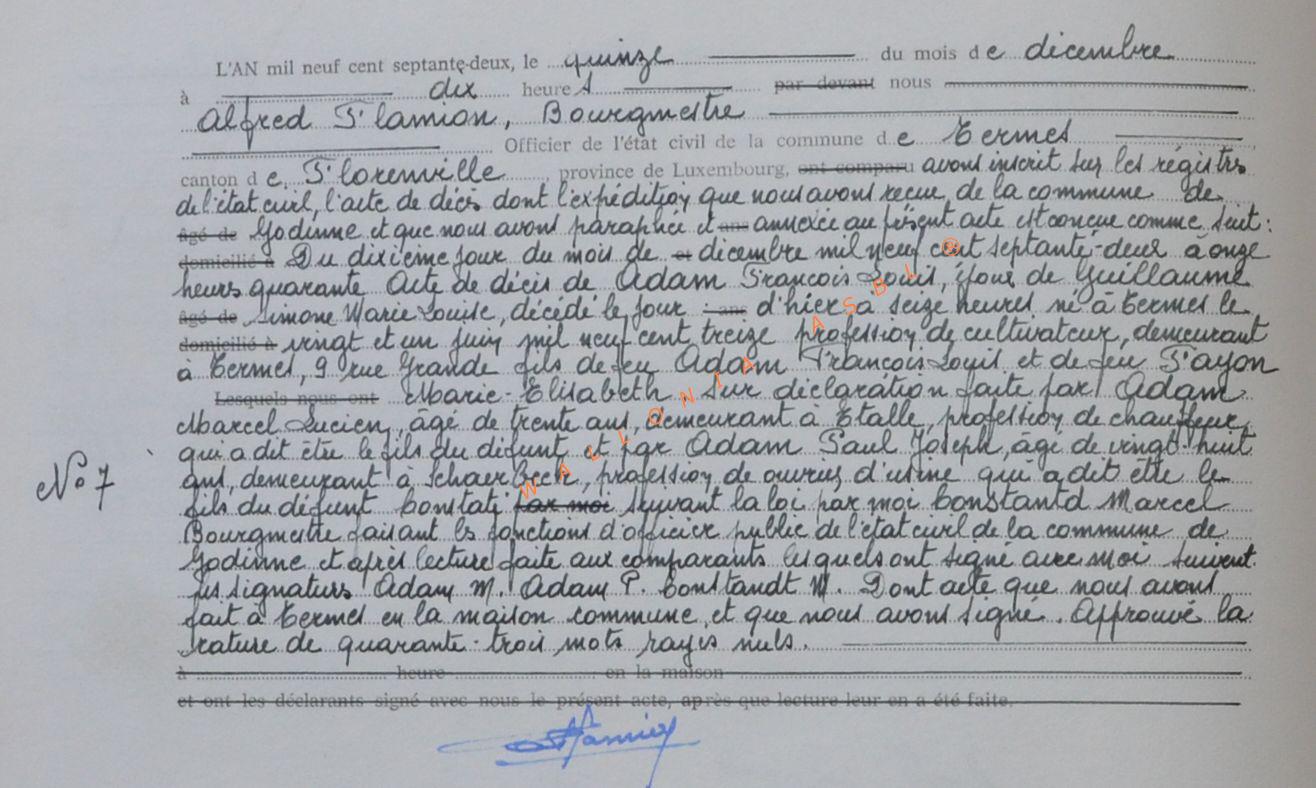 L'AN mil neuf cent septante-deux, le quinze du mois de décembre
à dix heures par devant nous
Alfred Flamion, Bourgmestre
Officier de l'état civil de la commune de Termes
canton de Florenville, province de Luxembourg, ont comparu avons inscrit sur les régistres
de l'état civil, l'acte de décès dont l'expédition que nous avons recue, de la commune de
âgé de Godinne et que nous avons paraphée et ans annexée au présent acte est conçue comme suit :
domicilié à Du dixième jour du mois de et décembre mil neuf cent septante-deux à onze
heures quarante Acte de décès de Adam François Louis, époux de Guillaume
âgé de Simone Marie Louise, décédé le jour ans d'hier à seize heures né à Termes le
domicilié à vingt et un juin mil neuf cent treize profession de cultivateur, demeurant
à Termes, 9 rue Grande fils de feu Adam François Louis et de feu Fayon
Lesquels nous ont Marie-Elisabeth. Sur déclaration faite par Adam
Marcel Lucien, âgé de trente ans, demeurant à Etalle, profession de chauffeur,
qui a dit être le fils du défunt et par Adam Paul Joseph, âgé de vingt-huit
N° 7
ans, demeurant à Schaerbeek, profession de ouvrier d'usine qui a dit être le
fils du défunt Constaté par moi suivant la loi par moi Constantd Marcel
Bourgmestre faisant les fonctions d'officier public de l'état civil de la commune de
Godinne et après lecture faite aux comparants lesquels ont signé avec moi suivent
les signatures Adam M. Adam P. Constandt M. Dont acte que nous avons
fait à Termes en la maison commune, et que nous avons signé. Approuvé la
rature de quarante-trois mots rayés nuls.
à heure en la maison
et ont les déclarants signé avec nous le présent acte, après que lecture leur en a été faite.
WALLONIA ASBL ®